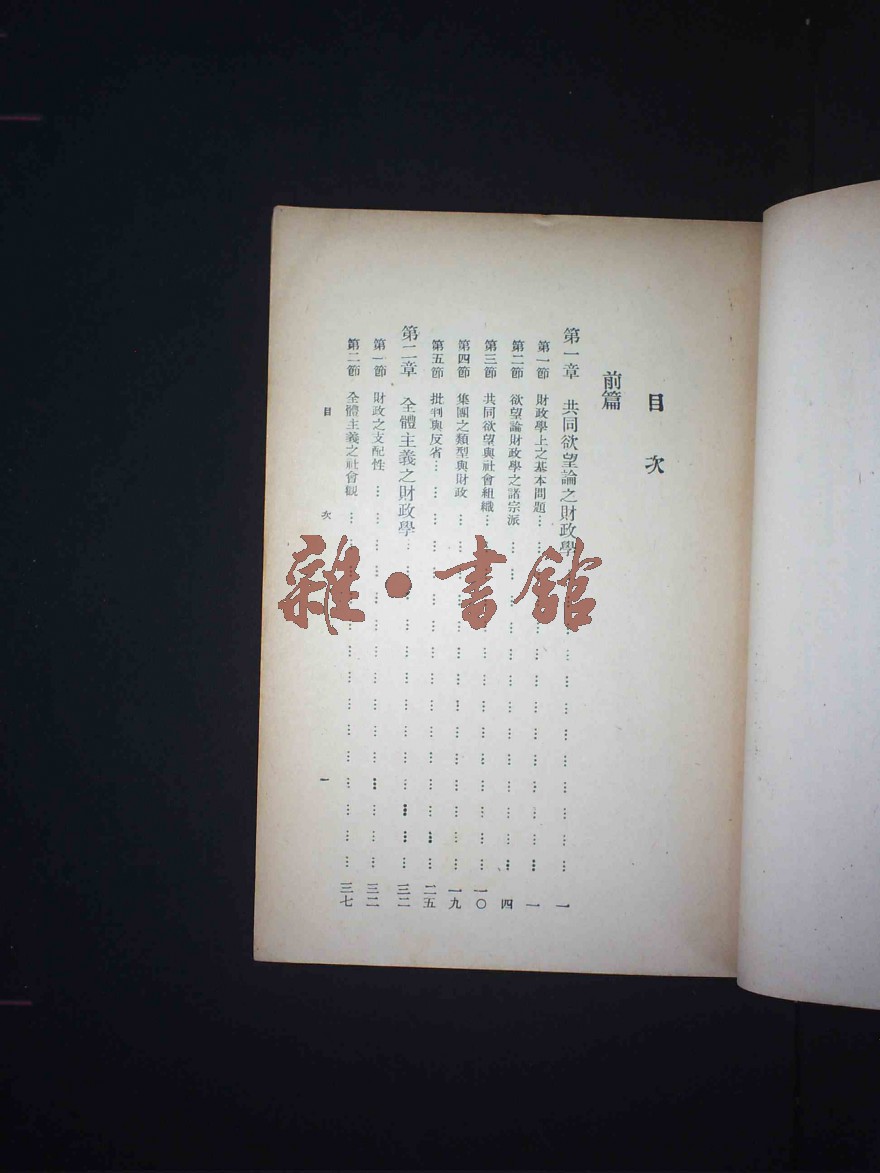 目次
前篇
第一章 共同欲望論之財政學……………………………………一
第一節 財政學上之基本問題……………………………………一
第二節 欲望論財政學之諸宗派……………………………………四
第三節 共同欲望與社會組織……………………………………一〇
第四節 集團之類型與財政……………………………………一九
第五節 批判與反省……………………………………二五
第二章 全體主義之財政學……………………………………三二
第一節 財政之支配性……………………………………三二
第二節 全體主義之社會觀……………………………………三七
目次 一
雜·書館